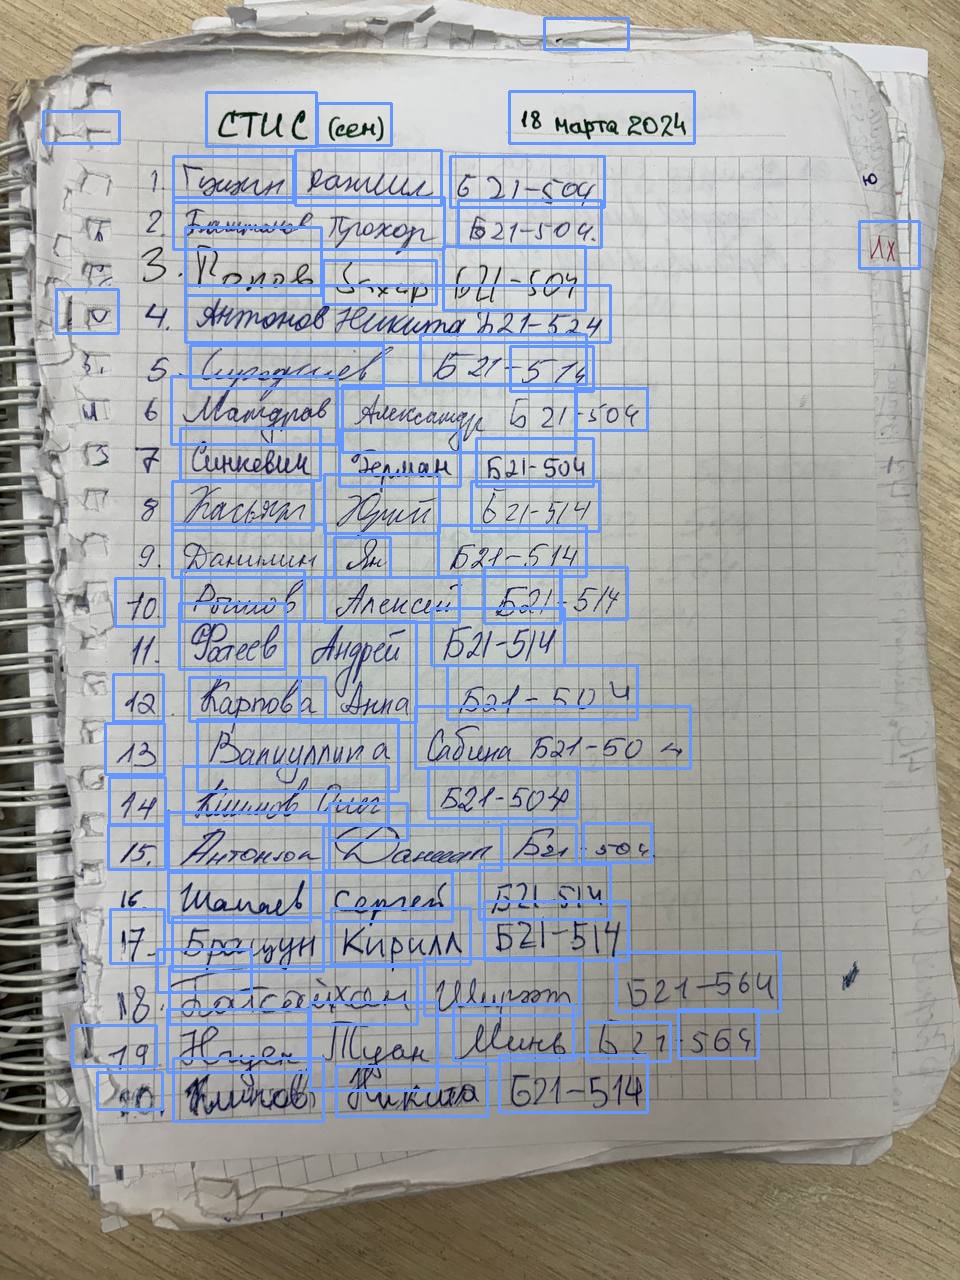 СТИС (сем) 18 марта 2024
1 Даниил Б21-504
2 Прохор Б21-504.
3. Попов Захар Б21-504
4. Антонов Никита Б21-524
5 Б21-514
6 Александр Б21-504
7 Синкевич Герман Б21-504
8 Касьян Юрий Б21-514
9. Данилин Ян Б21-514
10. Алексей Б21-514
11. Фатеев Андрей Б21-514
12. Карпова Анна Б21-504
13 Валиуллина Сабина Б21-504
14. Олег Б21-504
15. Антонюк Б21-504.
16. Шамаев Сергей Б21-514
17. Кирилл Б21-514
18. Батсайхан Б21-564
19. Нгуен Туан Минь Б21-564
20. Климов Никита Б21-514